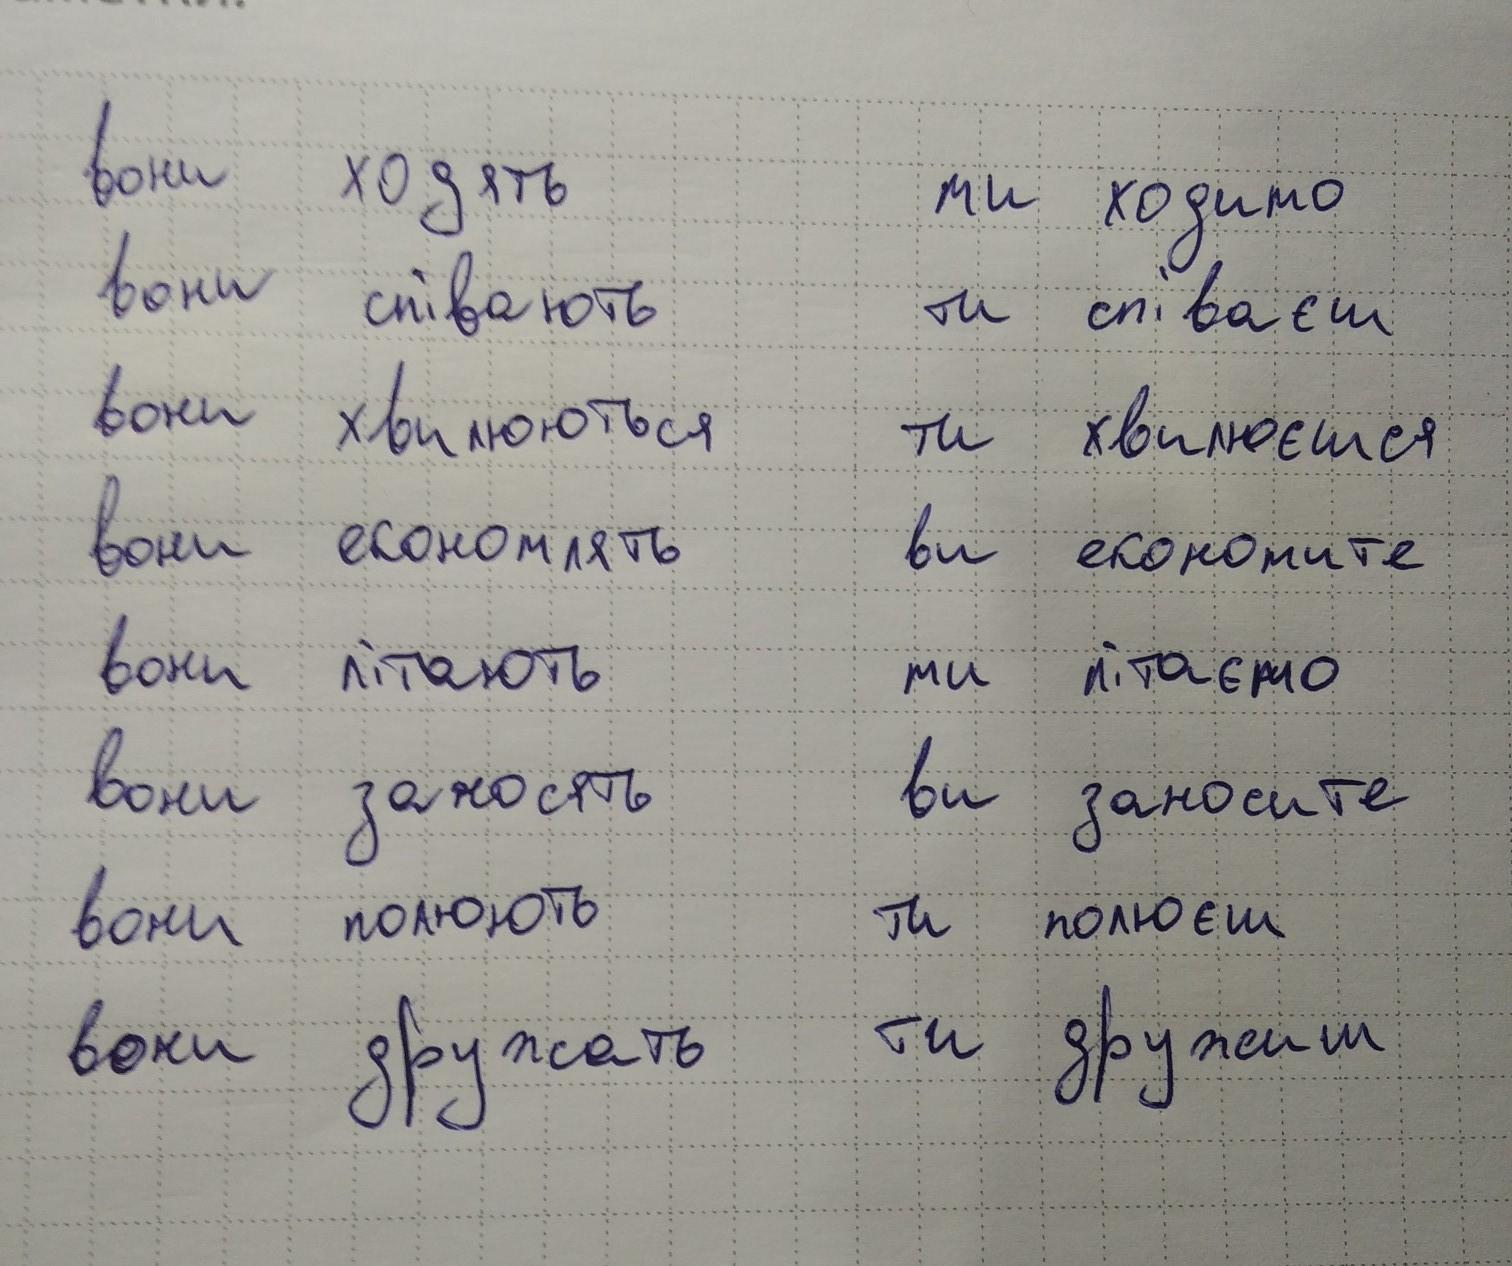 вони ходять ми ходимо
вони співають ти співаєш
вони хвилюються ти хвилюєшся
вони економлять ви економите
вони літають ми літаємо
вони заносять ви заносите
вони полюють ти полюєш
вони дружать ти дружиш